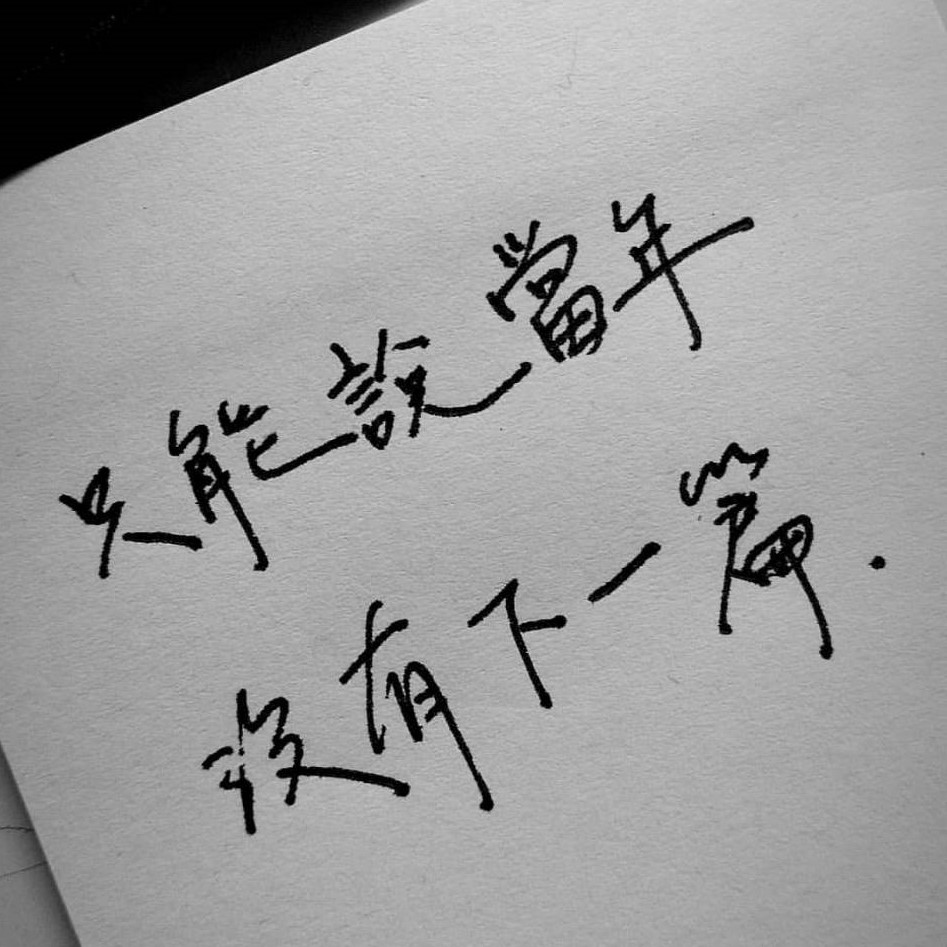 只能說當年
沒有下一篇.